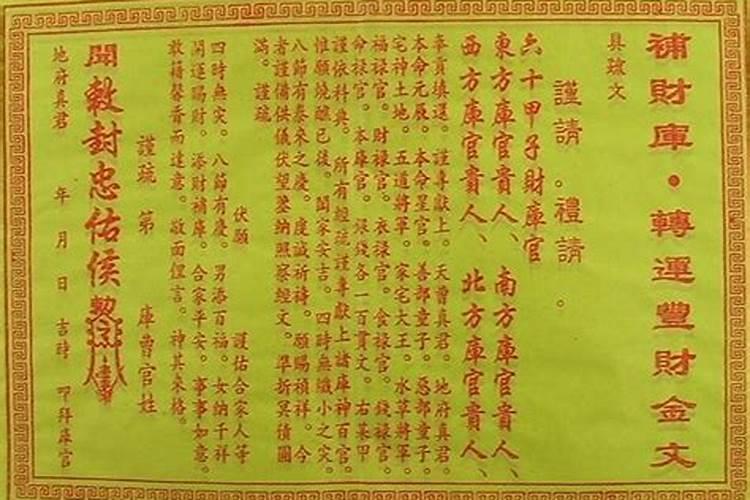 補財庫•轉運豐財金文
具疏文
謹請。禮請。
六十甲子財庫官
東方庫官貴人、南方庫官貴人、
西方庫官貴人、北方庫官貴人、
奉貢填還。謹專獻上。天曹真君。地府真君。
本命元辰。本命星官。善部童子。惡部童子。
宅神土地。五道將軍。家宅大王。水草將軍。
福祿官。財祿官。衣祿官。食祿官。錢祿官。
命祿官。本庫官。銀錢各一百貫文。右某甲
謹依科典。所有經疏謹專獻上諸庫神百官。
惟願燒醮已後。闔家安吉。四時無纖小之災。
八節有泰來之慶。虔誠祈禱。願賜禎祥。今
者謹備供儀伏望鑒納照察經文。準折冥債圓
滿。謹疏
伏願 謹佑合家人等
四時無災。八節有慶。男添百福。女納千祥
開運賜財。添財補庫。合家平安。事事如意。
敬藉馨香而達意。敬面俚言。神其來格。
謹疏 第 庫曹官姓
聞敕封忠佑侯
地府真君 年 月 日 吉時 叩拜庫官